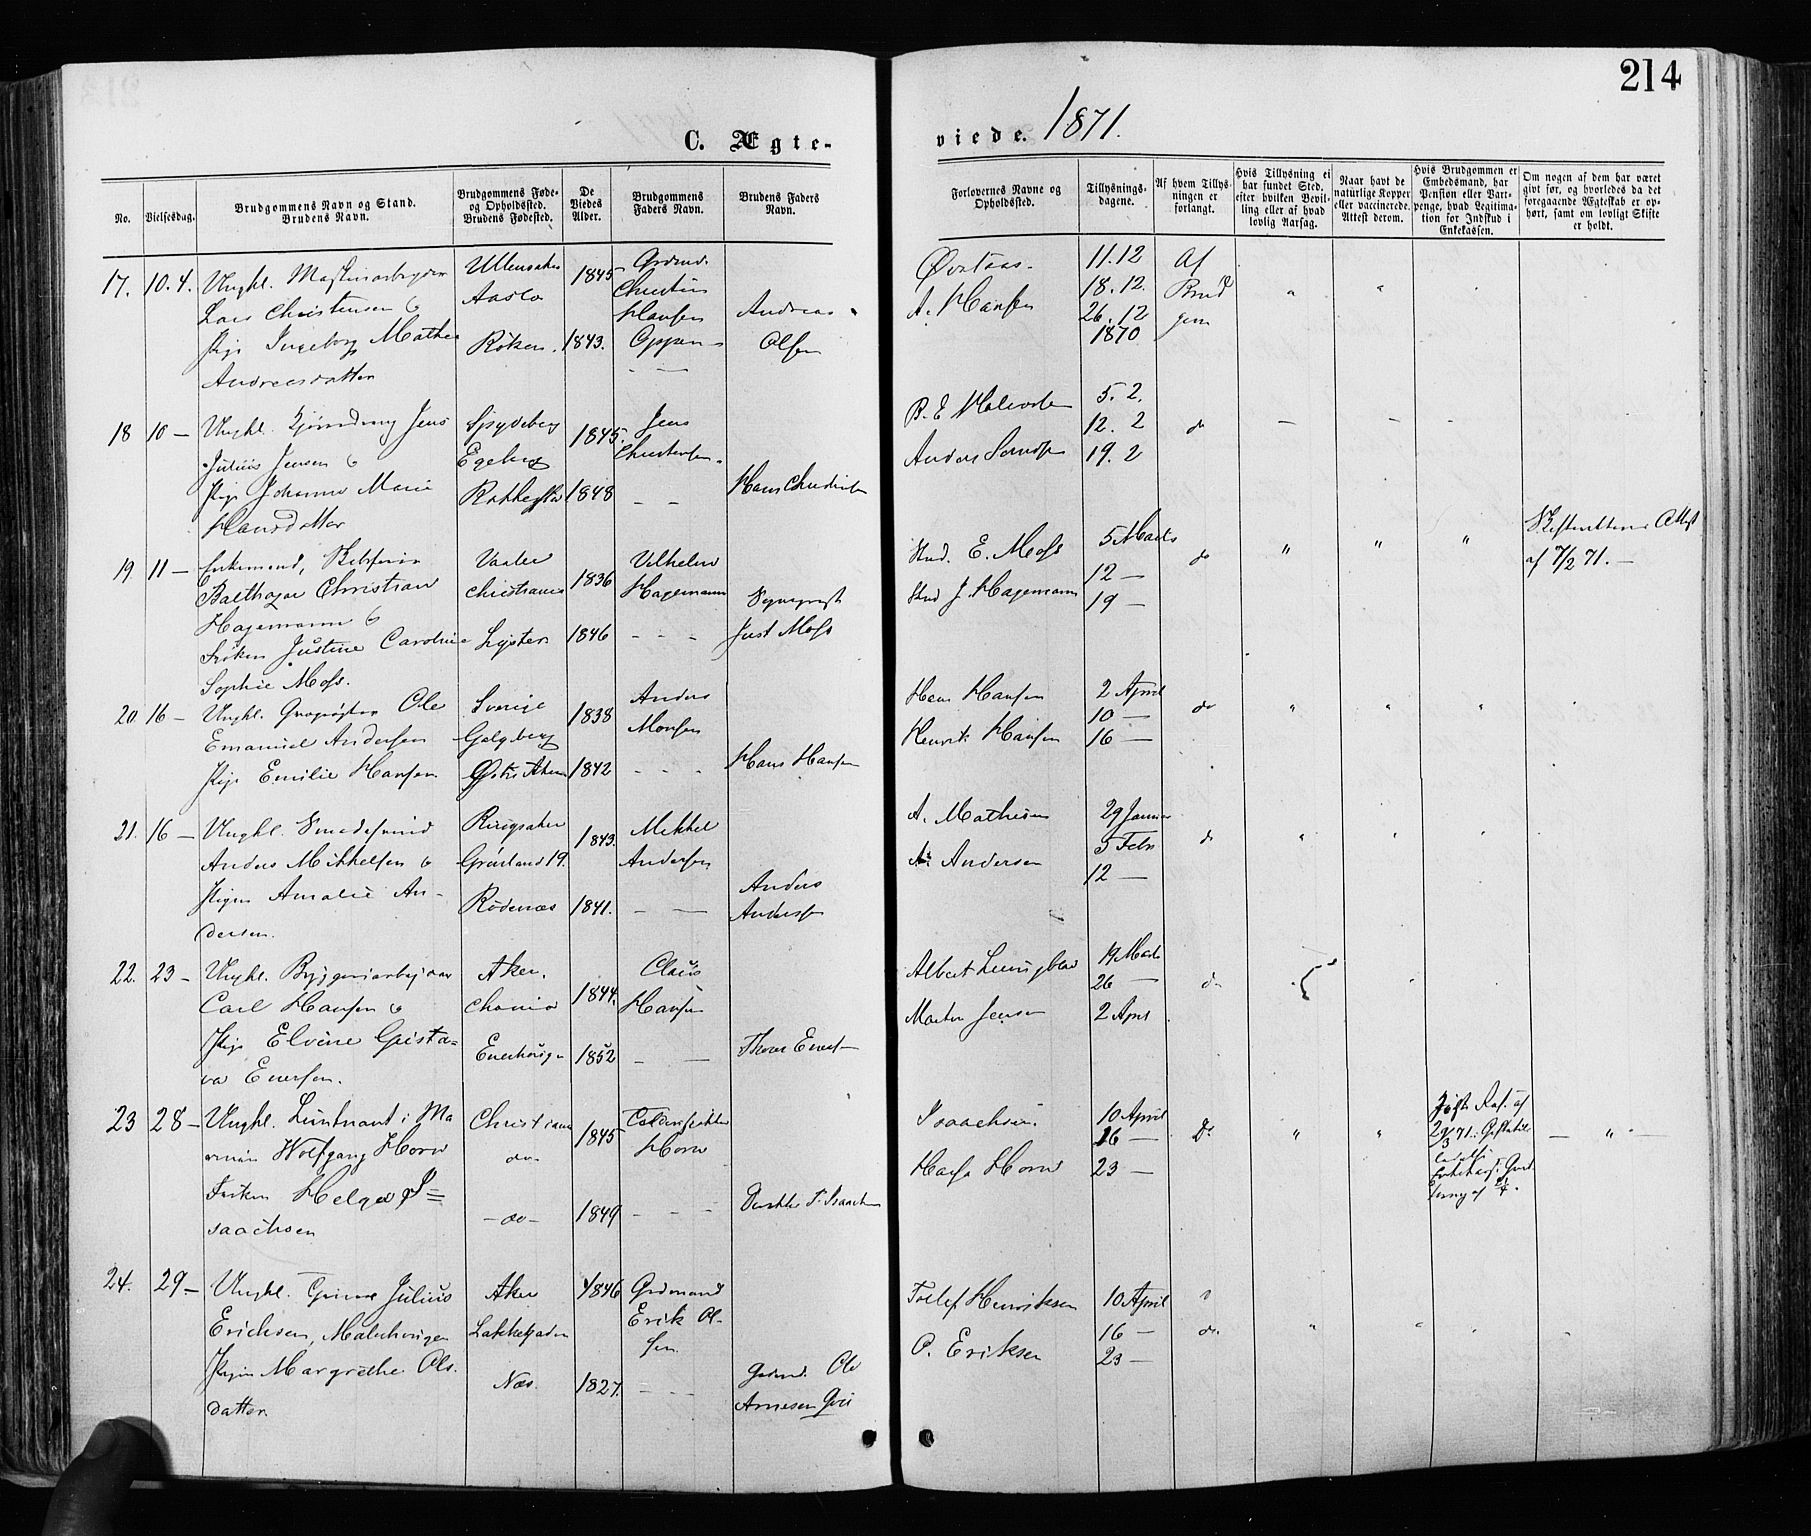 214
C. Ægte-
viede. 1871.
No.
Vielsesdag.
Brudgommens Navn og Stand.
Brudens Navn.
Brudgommens Føde-
og Opholdssted.
Brudens Fødested.
De
Viedes
Alder.
Brudgommens
Faders Navn.
Brudens Faders
Navn.
Forlovernes Navne og
Opholdssted.
Tillysnings-
dagene.
Af hvem Tillys-
ningen er
forlangt.
Hvis Tillysning ei
har fundet Sted,
efter hvilken Bevil-
ling eller af hvad
lovlig Aarsag.
Naar havt de
naturlige Kopper
eller vaccinerede.
Attest derom.
Hvis Brudgommen er
Embedsmand, har
Pension eller Vart-
penge, hvad Legitima-
tion for Indskud i
Enkekassen.
Om nogen af dem har været
givt før, og hvorledes da det
foregaaende Ægteskab er op-
hørt, samt om lovligt Skifte
er holdt.
17. 10.4.
Ungkl. Maskinarbeyder
Lars Christensen &
Pige Ingeborg Mathea
Andreasdatter
Ullensaker
Aaslo
Røken.
1845
1843.
Christian
Hansen
Andreas
Olsen
A. Hansen
11.12
18.12.
26.12
1870
Af
Brud
gom
18 10 —
Ungkl. Jens
Julius Jensen &
Pige Johanne Marie
Hansdatter
Spydeberg
Egeberg
Rakkestad
1845.
1848
Jens
Christensen.
— —
Hans Christensen
Anders
5.2.
12.2
19.2
do
19 11 —
Enkemand,
Balthazar Christian
Hagemann &
Frøken Justine Caroline
Sophie Moss.
Vaaler
Christiania
Lyster
1836
1846
Vilhelm
Hagemann
- - -
Sogneprest
Just Moss
Stud. E. Moss
Stud J. Hagemann
5 Marts
12 —
19 —
do
" " "
Skifterettens Attest
af 7/2 71. —
20 16 —
Ungkl. Ole
Emanuel Andersen
Pige Emilie Hansen
Sverige
Galgeberg
Østre Aker
1838
1842
Anders
Monsen
- - -
Hans Hansen
Hans Hansen
Henrik Hansen
2 April
10 —
16 —
do
21. 16 —
Ungkl. Smedesvend
Anders Mikkelsen &
Pigen Amalie An-
dersen.
Ringsaker
Grønland 19.
Rødenæs
1843.
1841.
Mikkel
Andersen
— —
Anders
Andersen
A. Mathisen
A. Andersen
29 Januar
5 Febr
12 —
do
22. 23 —
Ungkl. Byggeriarbejder
Carl Hansen &
Pige Elvine Gusta=
va Enersen.
Aker.
Chania
Enerhougen
1844.
1852
Claus
Hansen
— —
Thor Eners
Albert Ljungblad
Martin Jensen
19 Marts
26 —
2 April
do
23 28 —
Ungkl. Lieutnant i Ma
rinen Wolfgang Horn
Frøken Helga I=
saachsen
Christiania
do
— do —
1845
1849
Horn
- - -
Isaachsen
Isaachsen.
Horn
10 April
16 —
23 —
Do
" "
— " —
24. 29 —
Ungkl. Julius
Erichsen,
Pigen Margrethe Ols-
datter
Aker
Lakkegaden
Næs.
1846
1827.
Grdmand
Erik Ol-
sen
- - -
Gaardm. Ole
Arnesen
Henriksen
O. Eriksen
10 April
16 —
23 —
do